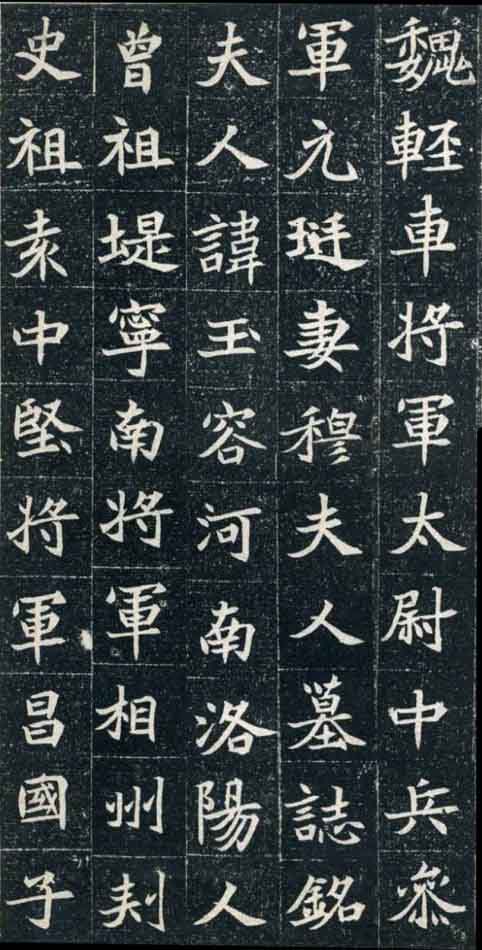 魏軽車将軍太尉中兵叅
軍元珽妻穆夫人墓誌銘
夫人諱玉容河南洛陽人
曾祖堤寧南将軍相州刾
史祖袁中堅将軍昌國子